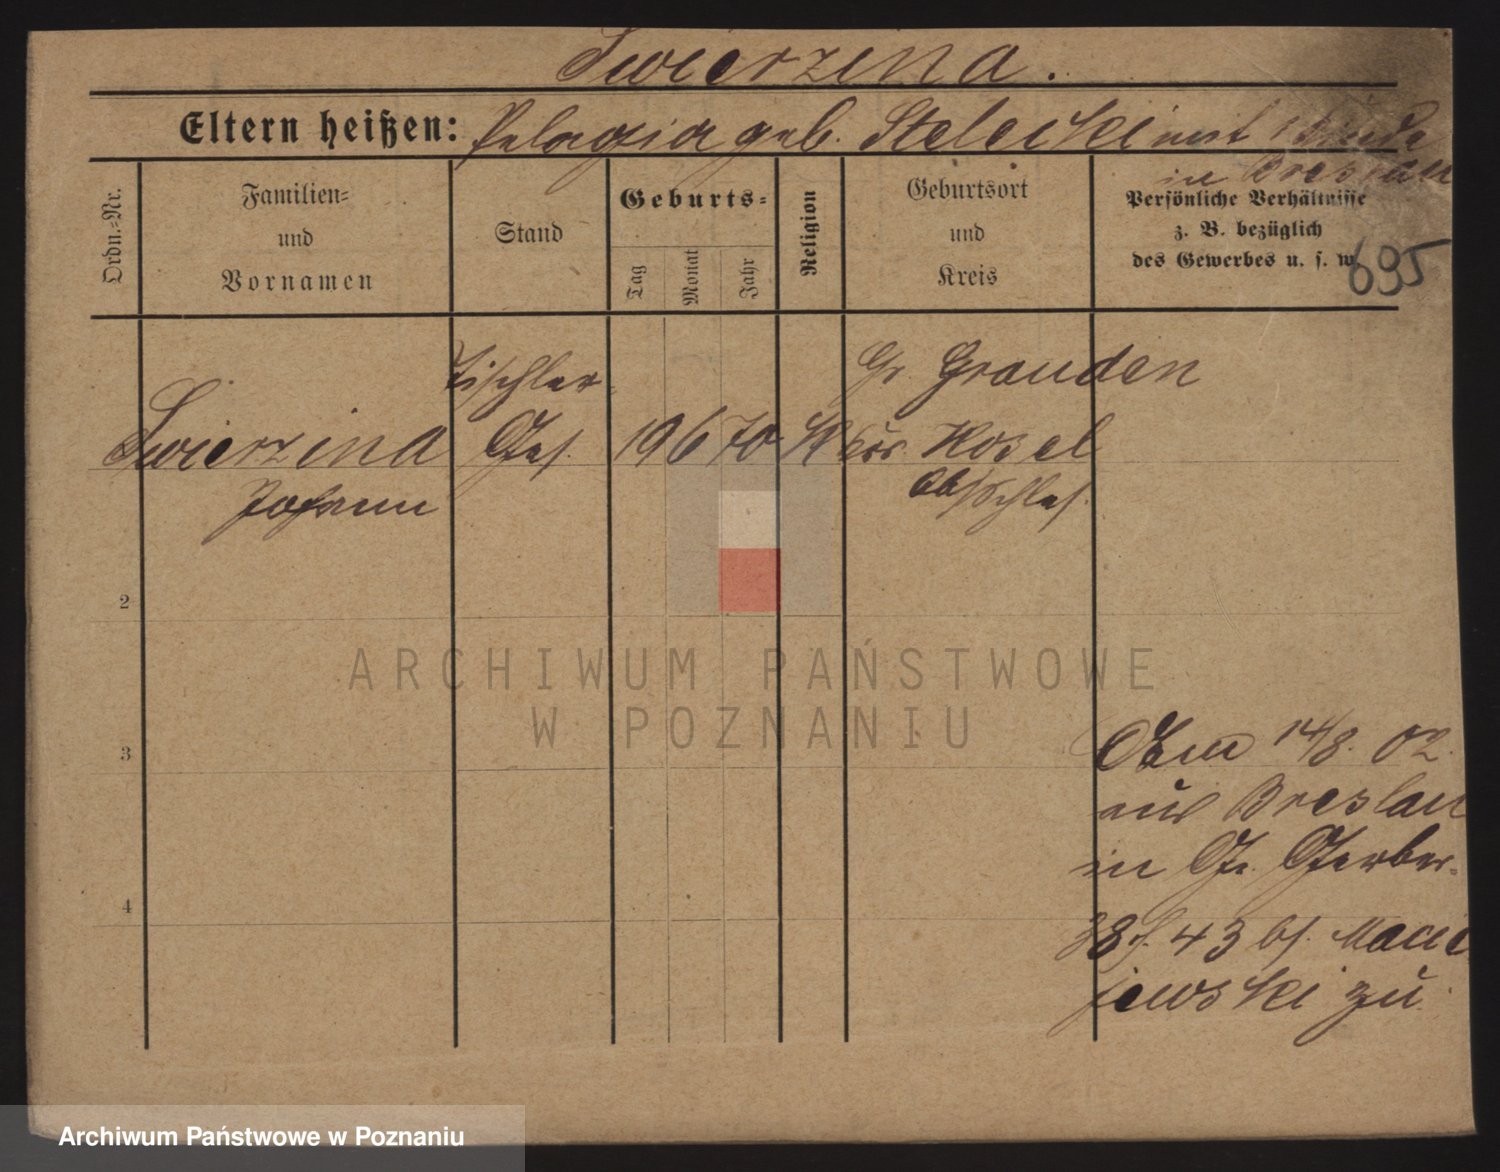 Swierzina.
Eltern heißen: Pelagia geb. Steletzki mit 1 Kinde
in Breslau
Ordn.=Nr.
Familien=
und
Vornamen
Stand
Geburts=
Tag
Monat
Jahr
Religion
Geburtsort
und
Kreis
Persönliche Verhältnisse
z. B. bezüglich
des Gewerbes u. s. w.
695
Swierzina
Johann
Tischler
Ges.
19 6 70
K
Gr. Grauden
Krs. Kosel
Ob/Schles.
2
3
4
14/8. 02.
aus Breslau
in Gr. Gerber
38 43 bs. Macie
jewski zu.
ARCHIWUM PAŃSTWOWE
W POZNANIU
Archiwum Państwowe w Poznaniu